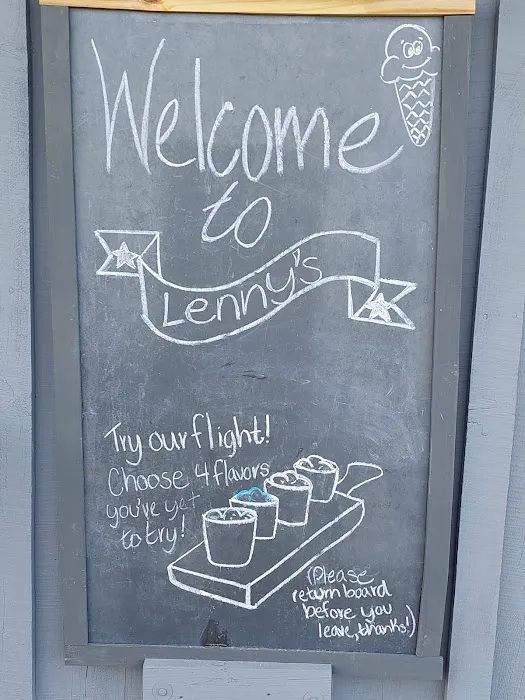 Welcome
to
Lenny's
Try our flight!
Choose 4 flavors
you've yet
to try!
(Please
return board
before you
leave, thanks!)